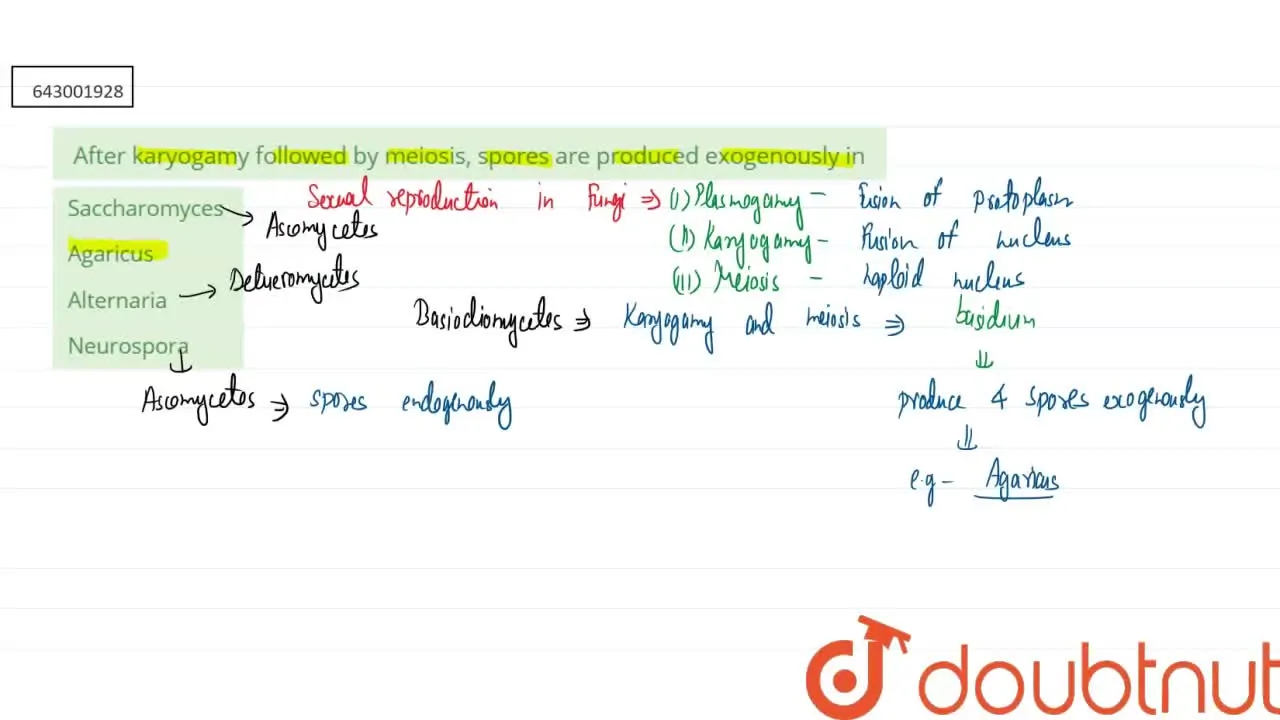 643001928
After karyogamy followed by meiosis, spores are produced exogenously in
Saccharomyces
Agaricus
Alternaria
Neurospora
Ascomycetes
Detueromycetes
Ascomycetes ⇒ spores endogenously
Sexual reproduction in Fungi ⇒ (I) Plasmogamy - Fusion of protoplasm
(II) Karyogamy - Fusion of nucleus
(III) Meiosis - haploid nucleus
Basiodiomycetes ⇒ Karyogamy and meiosis ⇒ basidium
produce 4 spores exogenously
e.g - Agaricus
doubtnut